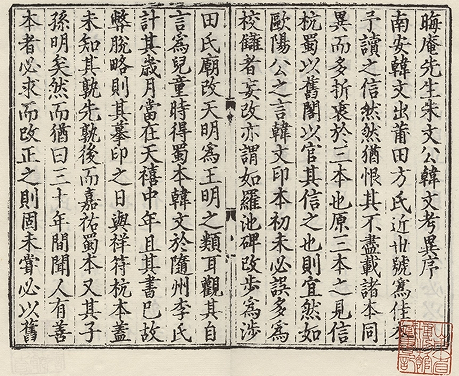 晦庵先生朱文公韓文考異序
南安韓文出莆田方氏近世號爲佳本
予讀之信然然猶恨其不盡載諸本同
異而多折衷於三本也原三本之見信
杭蜀以舊閣以官其信之也則宜然如
歐陽公之言韓文印本初未必誤多爲
校讎者妄改亦謂如羅池碑改步爲涉
田氏廟改天明爲王明之類耳觀其自
言爲兒童時得蜀本韓文於隨州李氏
計其歲月當在天禧中年且其書已故
弊脫略則其摹印之日與祥符杭本蓋
未知其孰先孰後而嘉祐蜀本又其子
孫明矣然而猶曰三十年間聞人有善
本者必求而改正之則固未嘗必以舊